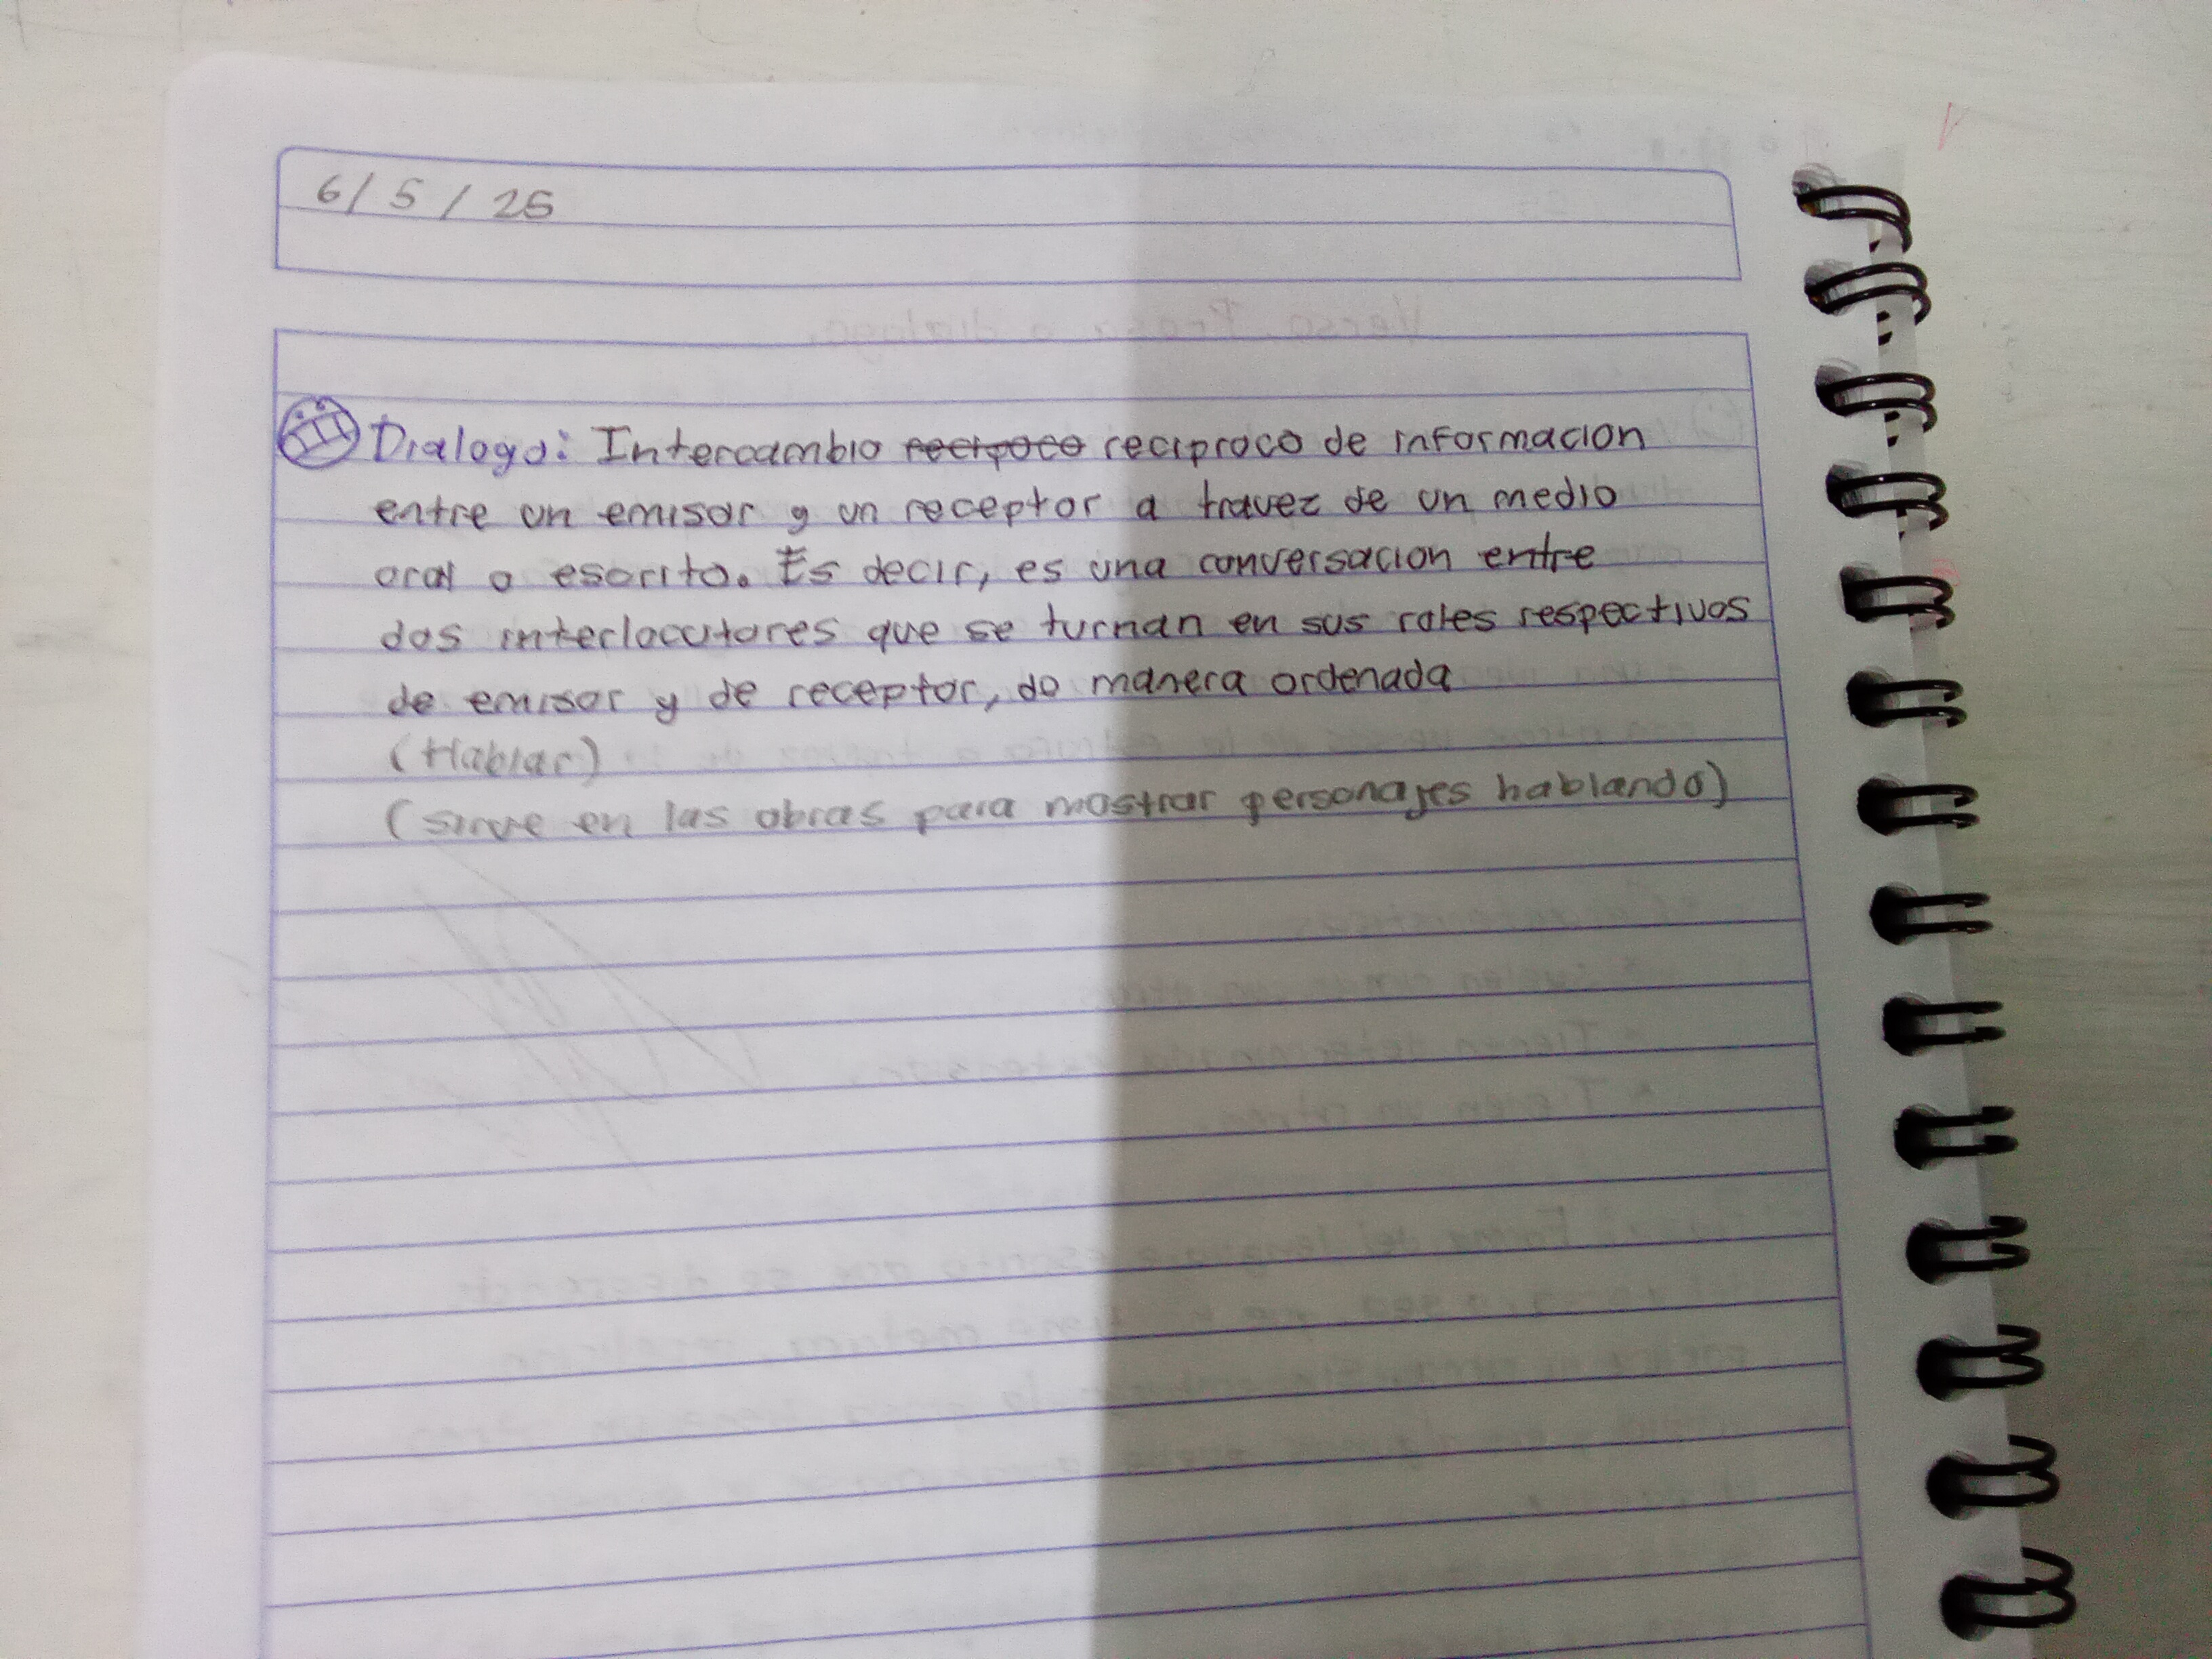 6/ 5 / 25
Dialogo: Intercambio recipoco reciproco de informacion
entre un emisor y un receptor a travez de un medio
oral o escrito. Es decir, es una conversacion entre
dos interlocutores que se turnan en sus roles respectivos
de emisor y de receptor, de manera ordenada
(Hablar)
(sirve en las obras para mostrar personajes hablando)